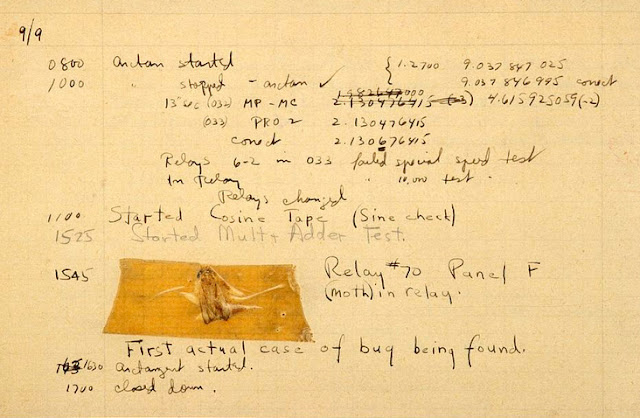 9/9
0800 arctan started { 1.2700 9.037 847 025
1000 " stopped - arctan ✓ 9.037 846 995 correct
13"sec (032) MP - MC 2.130476415 (-3) 4.615925059(-2)
(033) PRO 2 2.130476415
correct 2.130676415
Relays 6-2 in 033 failed special speed test
In Relay " 10,000 test .
Relays changed
1100 Started Cosine Tape (Sine check)
1525 Started Mult + Adder Test.
1545 Relay #70 Panel F
(moth) in relay.
First actual case of bug being found.
1630 arctangent started.
1700 closed down.